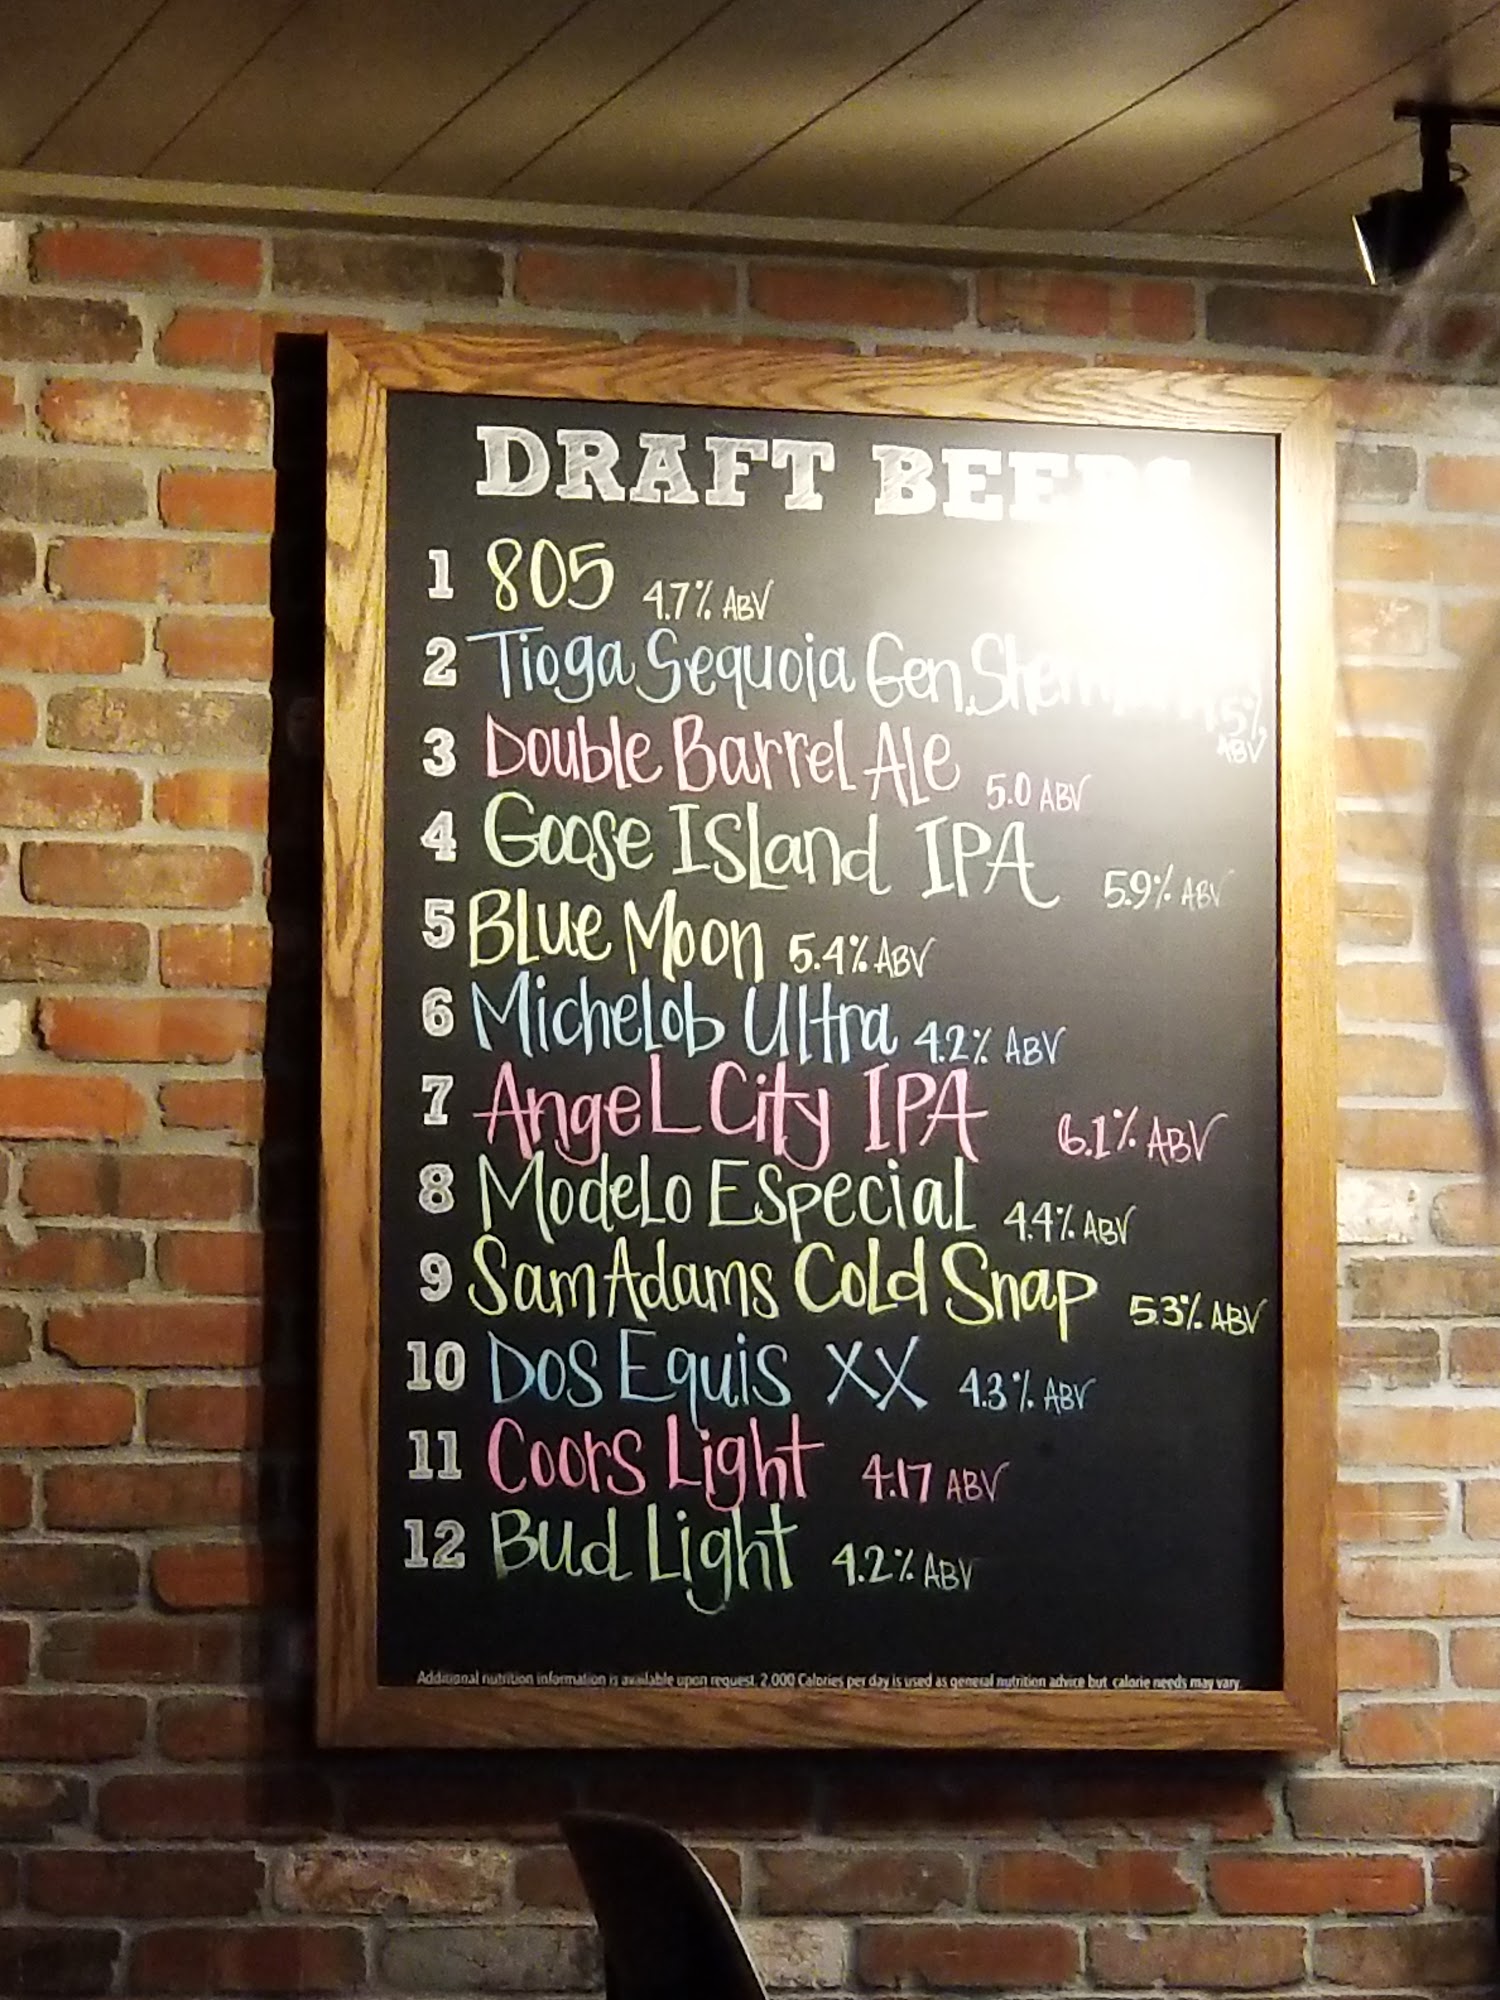 DRAFT BEERS
1 805 4.7% ABV
2 Tioga Sequoia Gen. Sherman
5% ABV
3 Double Barrel Ale 5.0 ABV
4 Goose Island IPA 5.9% ABV
5 Blue Moon 5.4% ABV
6 Michelob Ultra 4.2% ABV
7 Angel City IPA 6.1% ABV
8 Modelo Especial 4.4% ABV
9 Sam Adams Cold Snap 5.3% ABV
10 Dos Equis XX 4.3% ABV
11 Coors Light 4.17 ABV
12 Bud Light 4.2% ABV
Additional nutrition information is available upon request. 2,000 Calories per day is used as general nutrition advice but calorie needs may vary.